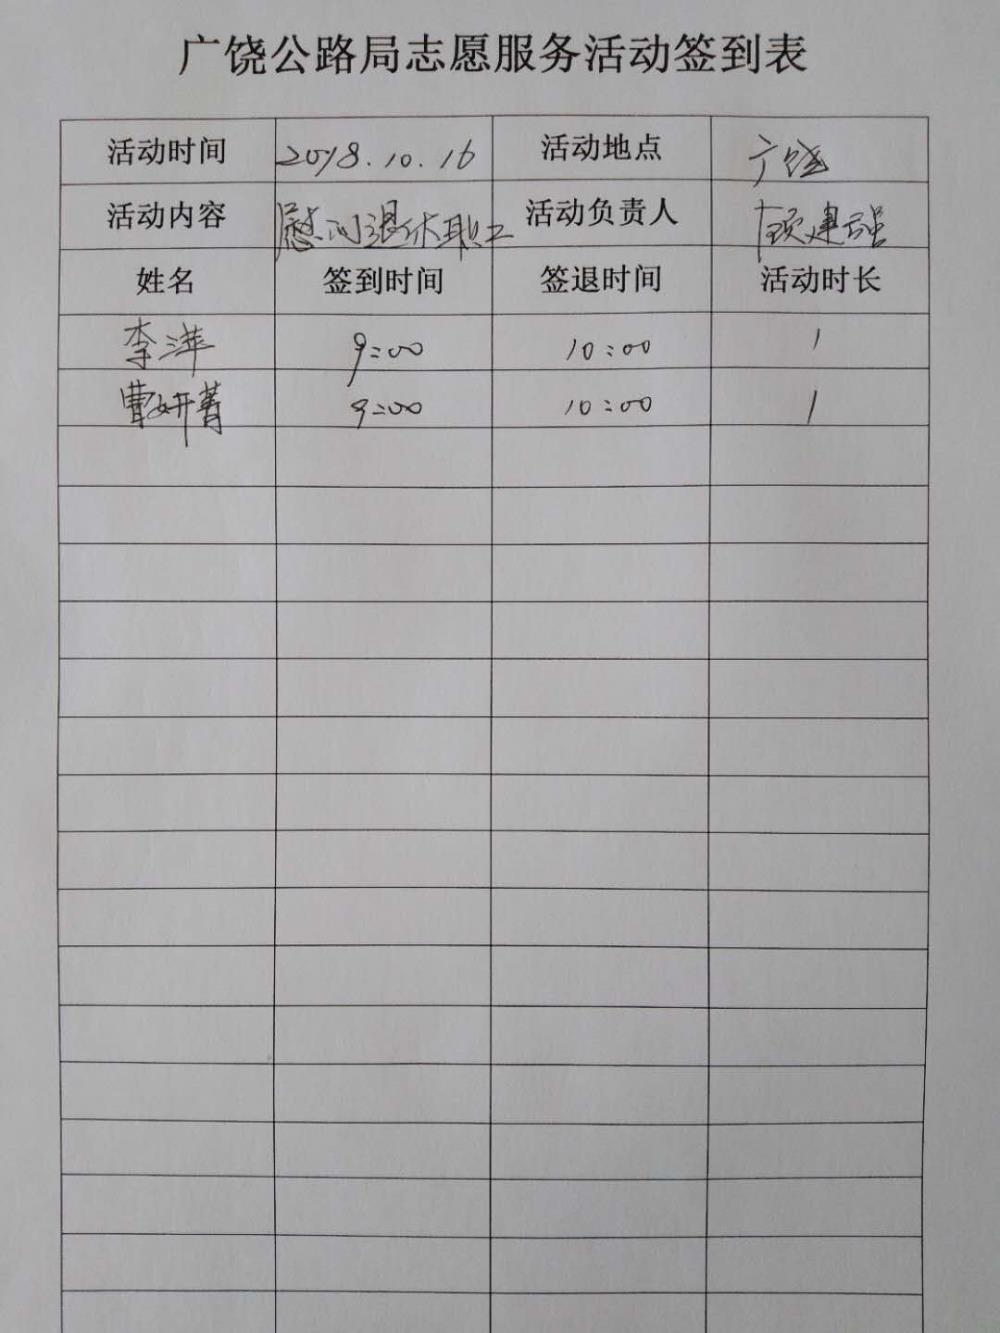 广饶公路局志愿服务活动签到表
活动时间 2018.10.16 活动地点 广饶
活动内容 慰问退休职工 活动负责人 顾建强
姓名 签到时间 签退时间 活动时长
李萍 9:00 10:00 1
曹妍菁 9:00 10:00 1